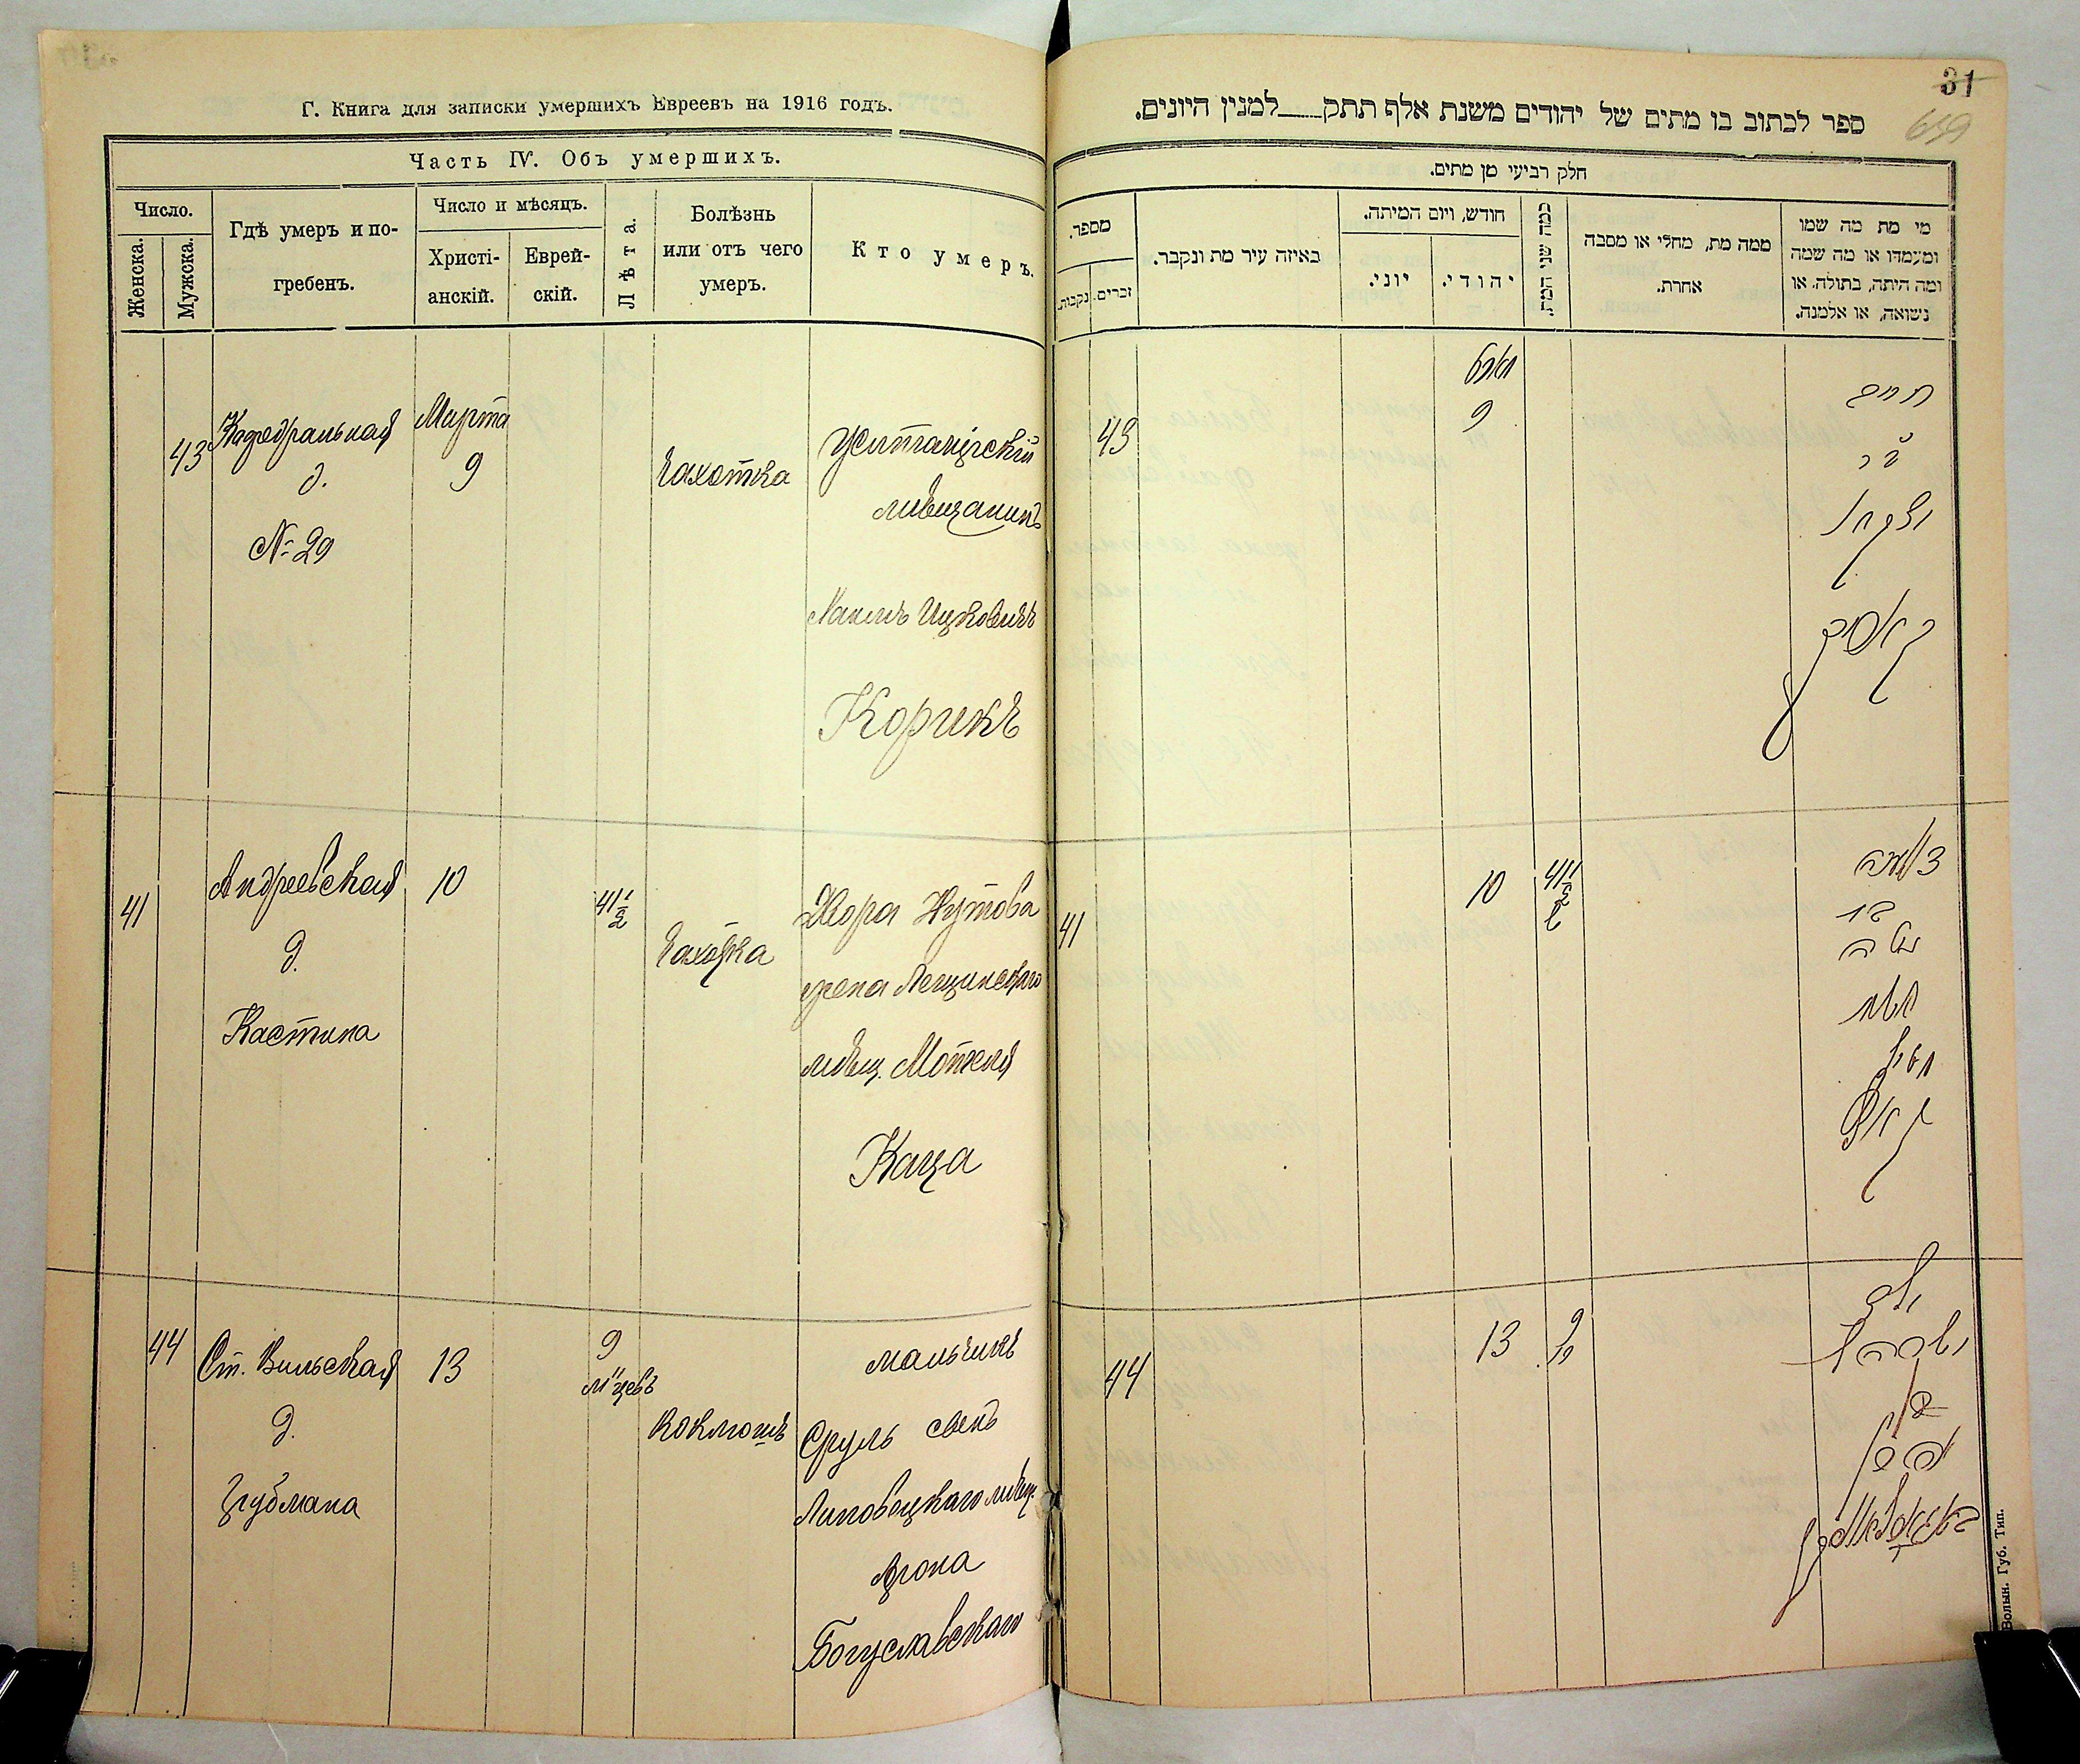 Г. Книга для записки умершихъ Евреевъ на 1916 годъ.
Часть IV. Объ умершихъ.
Число.
Женска.
Мужска.
Гдѣ умеръ и по-
гребенъ.
Число и мѣсяцъ.
Христі-
анскій.
Еврей-
скій.
Лѣта.
Болѣзнь
или отъ чего
умеръ.
Кто умеръ.
43
Кафедральная
д.
№ 29
Марта
9
Чахотка
мѣщанинъ
Ицковичъ
Корикъ
41
Андреевская
д.
10
41 1/2
Чахотка
Двора Нутова
жена
мѣщ. Мотеля
Каца
44
Ст. Вильская
д.
13
9
м-цевъ
Коклюшъ
мальчикъ
Сруль сынъ
Липовецкаго мѣщ.
Арона
Богуславскаго
31
659
ספר לכתוב בו מתים של יהודים משנת אלף תתק___למנין היונים.
חלק רביעי מן מתים.
מספר.
זכרים.
נקבות.
באיזה עיר מת ונקבר.
חודש, ויום המיתה.
יוני.
יהודי.
כמה שני המת.
ממה מת, מחלי או מסבה
אחרת.
מי מת מה שמו
ומעמדו או מה שמה
ומה היתה, בתולה או
נשואה, או אלמנה.
43
9
חיים
יצחק
קאריק
41
10
41 1/2
אשת
קאץ
44
13
9
ילד
ישראל
אהרן
Волын. Губ. Тип.